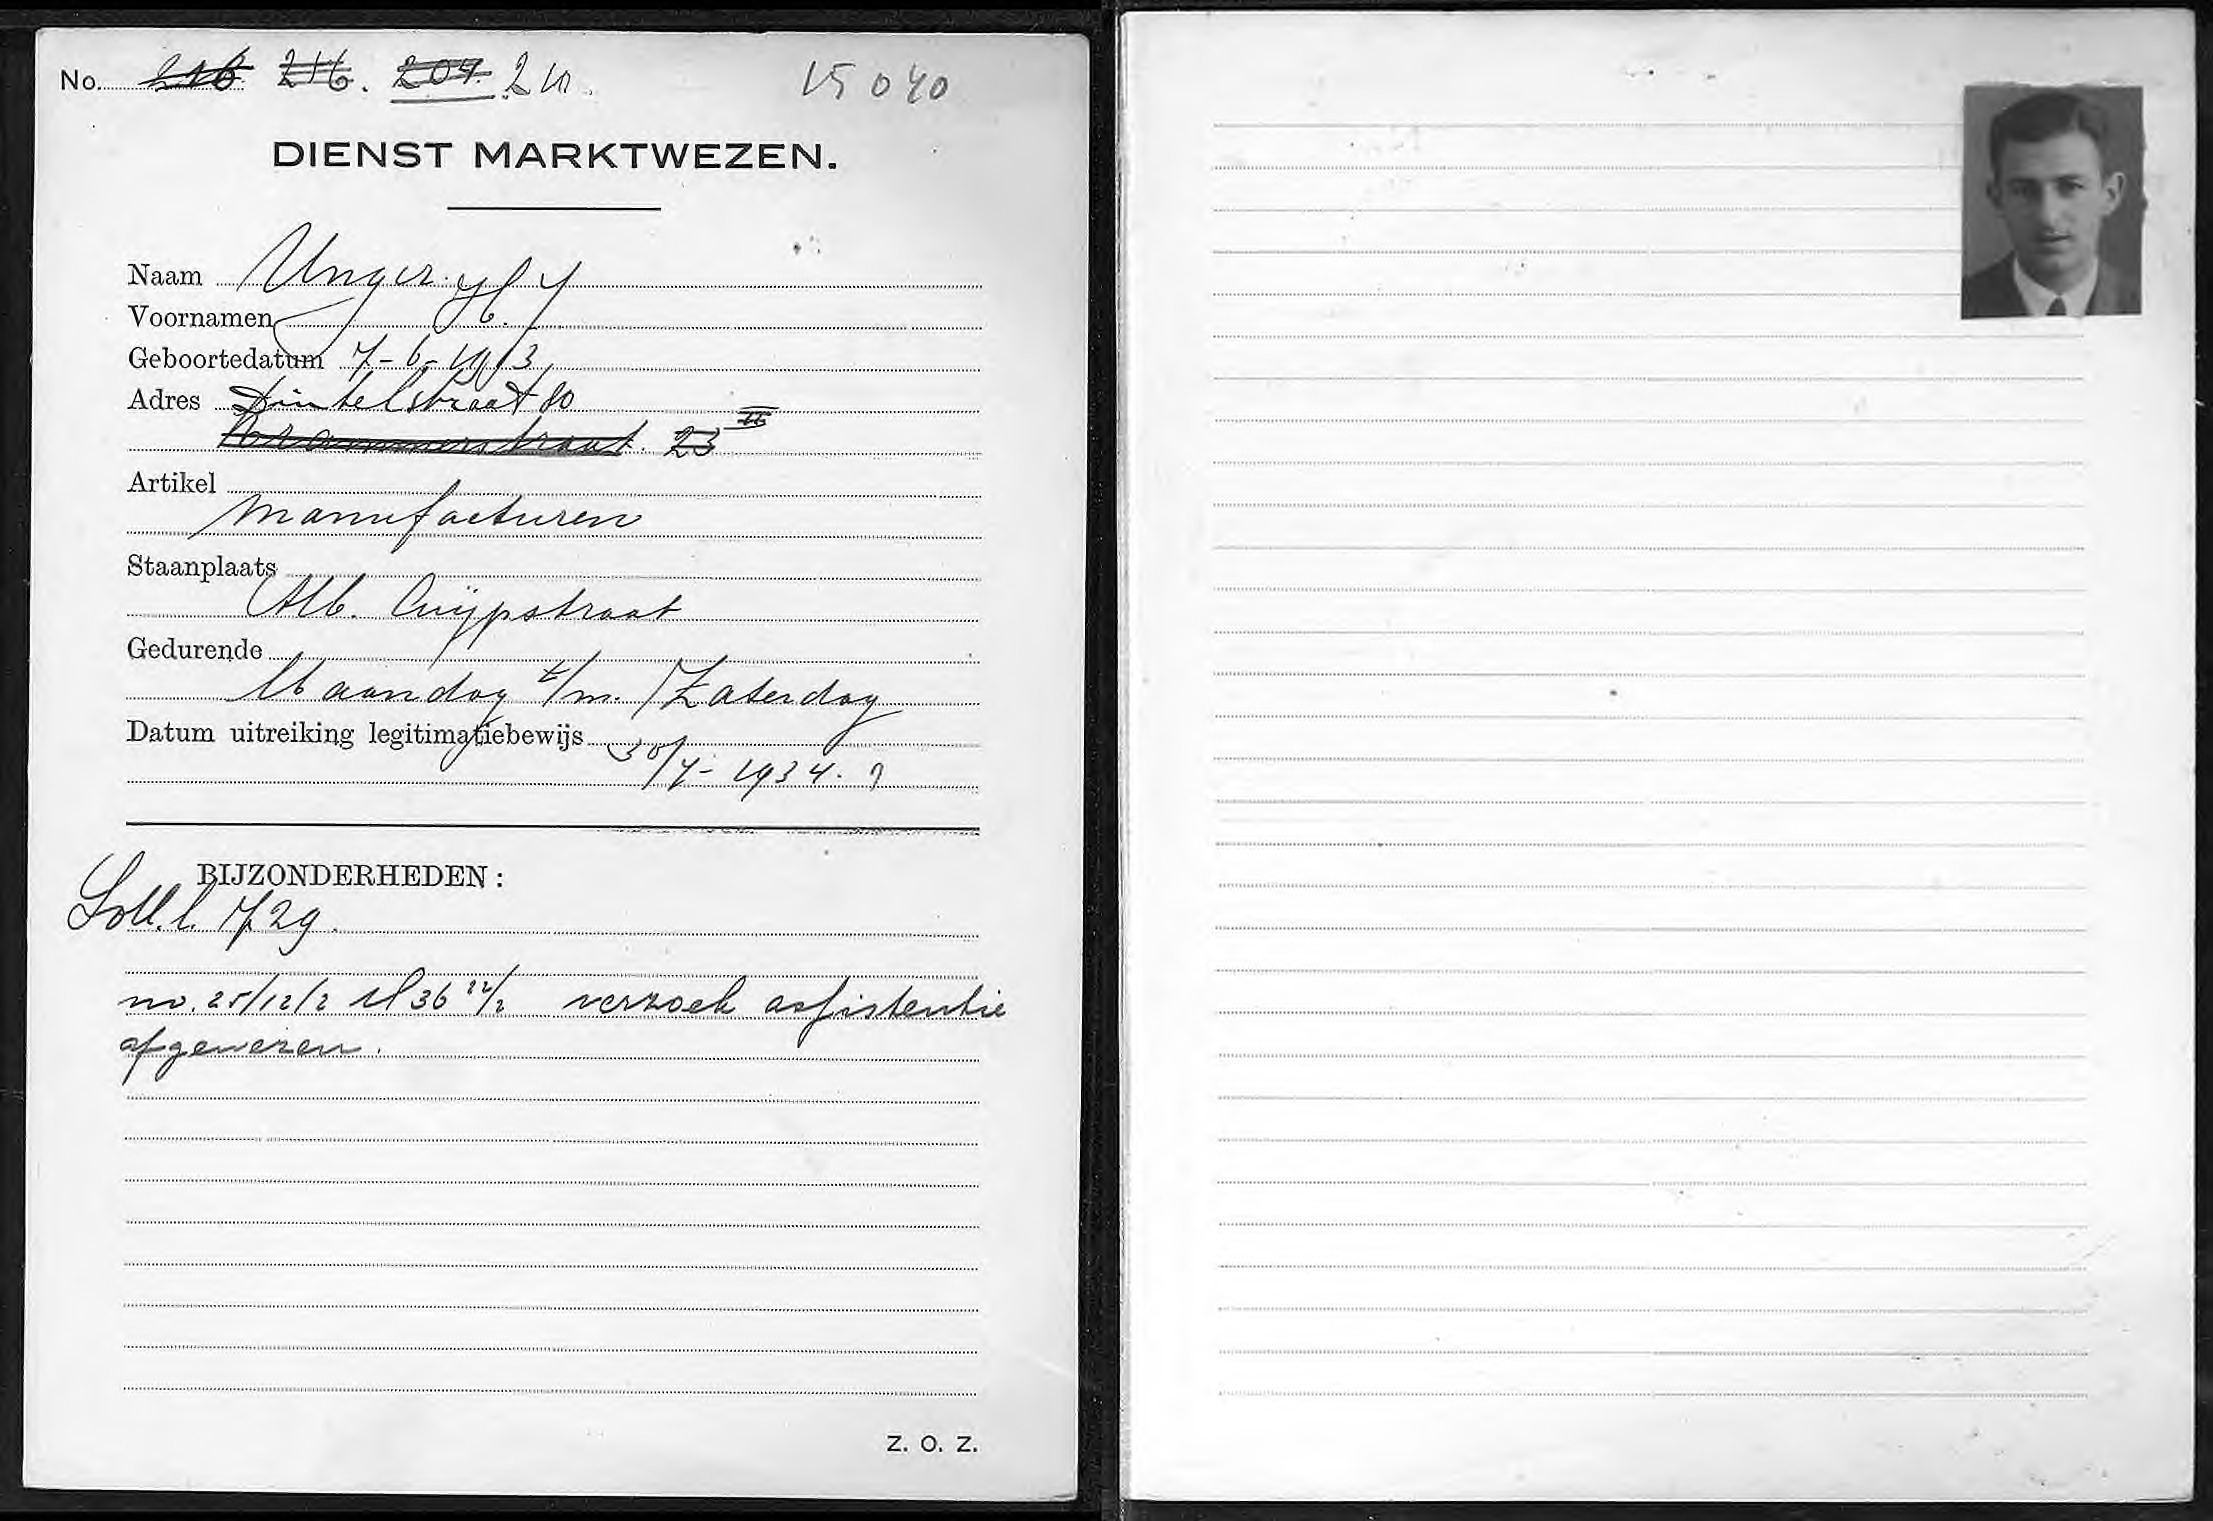 No. 216 216. 204. 210. 15040
DIENST MARKTWEZEN.
Naam Unger. H. J
Voornamen
Geboortedatum 7-6-1913
Adres Dintelstraat 80
23 III
Artikel
Manufacturen
Staanplaats
Alb. Cuijpstraat
Gedurende
Maandag t/m. Zaterdag
Datum uitreiking legitimatiebewijs
30/4-1934.
BIJZONDERHEDEN:
Soll. l. 729.
no. 25/12/2 M 36 22/2 verzoek assistentie
afgewezen.
Z. O. Z.